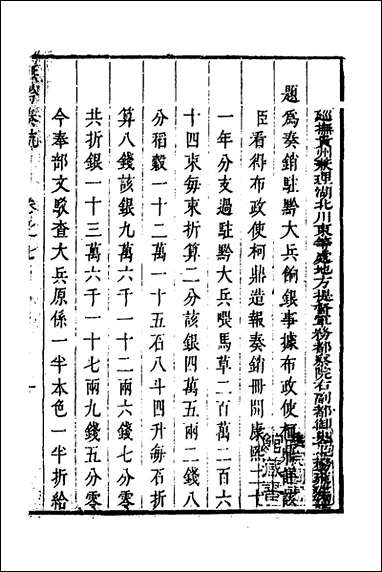 巡撫貴州兼理湖北川東等處地方提督軍務都察院右副都御史
題爲奏銷駐黔大兵餉銀事據布政使柯鼎
臣看得布政使柯鼎造報奏銷冊開康熙二十
一年分支過駐黔大兵喂馬草二百萬二百六
十四束每束折算二分該銀四萬五兩二錢八
分稻穀一十二萬一十五石八斗四升每石折
算八錢該銀九萬六千一十二兩六錢七分零
共折銀一十三萬六千一十七兩九錢五分零
今奉部文駁查大兵原係一半本色一半折給
卷之七
一